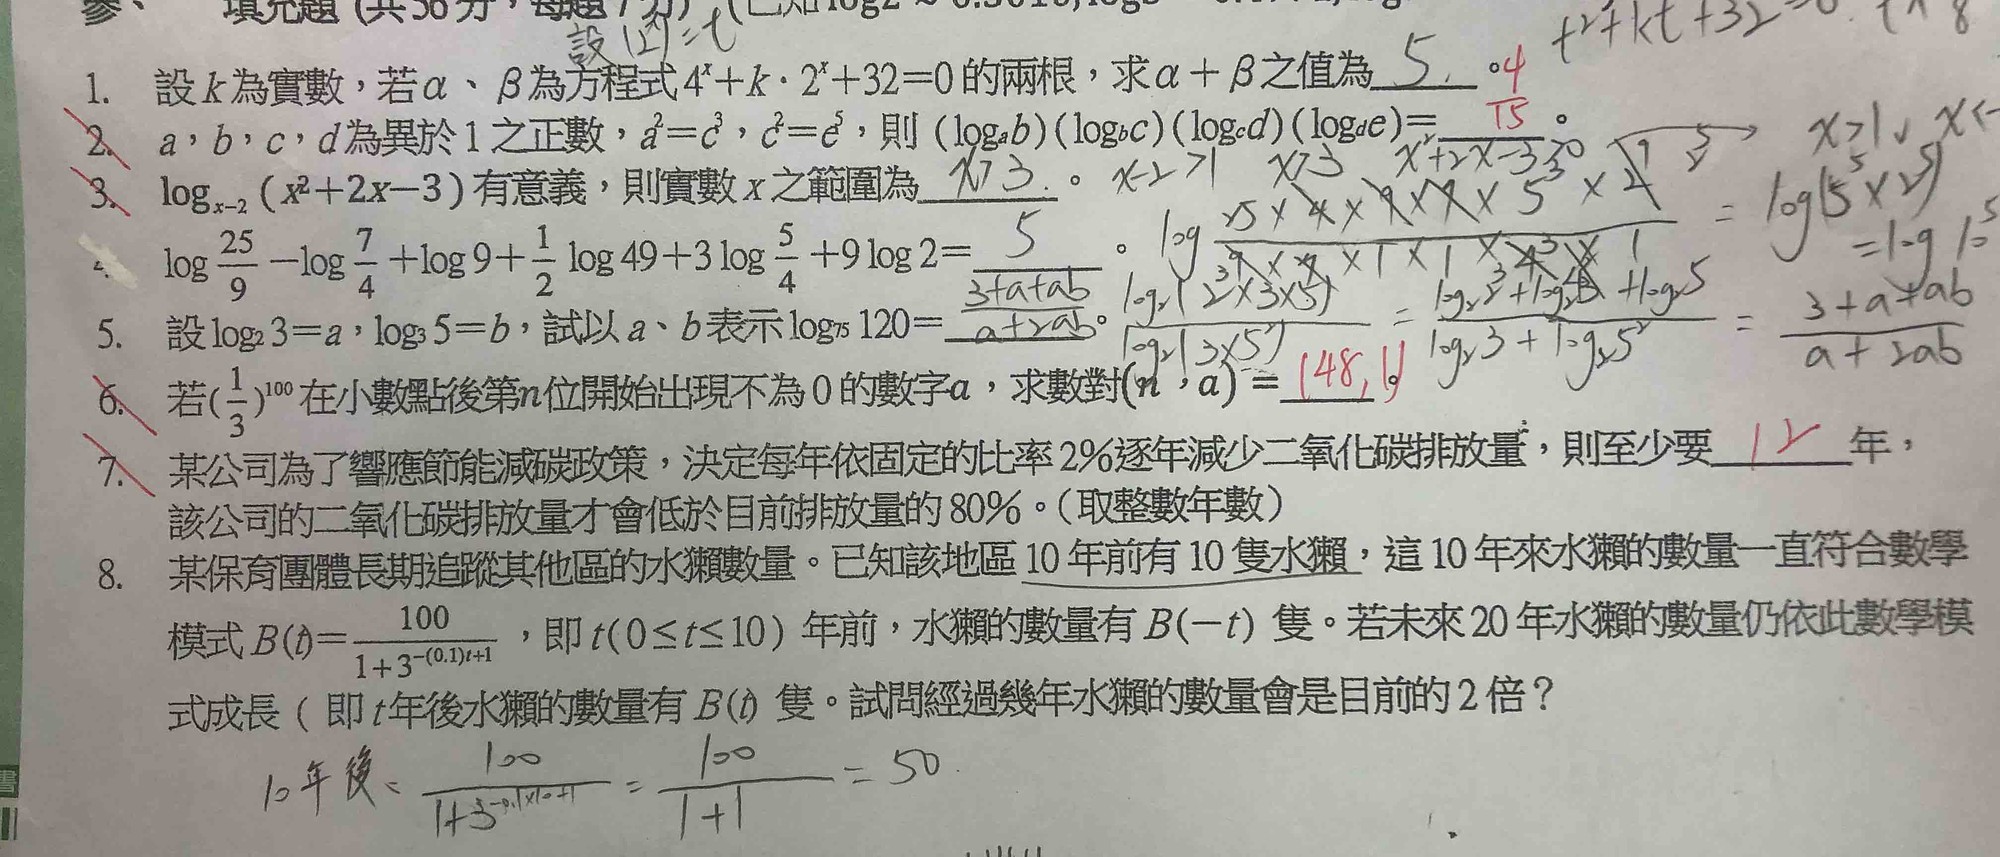 參、 填充題 (共56分，每題7分) (已知log2≈0.3010, log3
設(2ˣ)=t
t²+kt+32=0
1. 設k為實數，若α、β為方程式4ˣ+k·2ˣ+32=0的兩根，求α+β之值為 5 。
2. a，b，c，d為異於1之正數，a²=c³，c²=e⁵，則 (logₐb)(log_b c)(log_c d)(log_d e)= 4/15 。
3. logₓ₋₂ (x²+2x−3) 有意義，則實數x之範圍為 x>3 。 x-2>1 x>3 x²+2x-3>0 x>1, x<-
4. log 25/9 −log 7/4 +log 9+ 1/2 log 49+3 log 5/4 +9 log 2= 5 。
= log(5⁵×2⁵)
=log 10⁵
5. 設log₂ 3=a，log₃ 5=b，試以a、b表示log₇₅ 120= (3+a+ab)/(a+2ab) 。 log₂(2³×3×5)/log₂(3×5²) = (log₂2³+log₂3+log₂5)/(log₂3+log₂5²) = (3+a+ab)/(a+2ab)
6. 若(1/3)¹⁰⁰在小數點後第n位開始出現不為0的數字a，求數對(n，a) = (48,1) 。
7. 某公司為了響應節能減碳政策，決定每年依固定的比率2%逐年減少二氧化碳排放量，則至少要 12 年，
該公司的二氧化碳排放量才會低於目前排放量的80%。（取整數年數）
8. 某保育團體長期追蹤其他區的水獺數量。已知該地區10年前有10隻水獺，這10年來水獺的數量一直符合數學
模式B(t)= 100/(1+3^(−(0.1)t+1)) ，即t(0≤t≤10) 年前，水獺的數量有B(−t) 隻。若未來20年水獺的數量仍依此數學模
式成長 ( 即t年後水獺的數量有B(t) 隻。試問經過幾年水獺的數量會是目前的2倍？
10年後= 100/(1+3^(-0.1×10+1)) = 100/(1+1) = 50